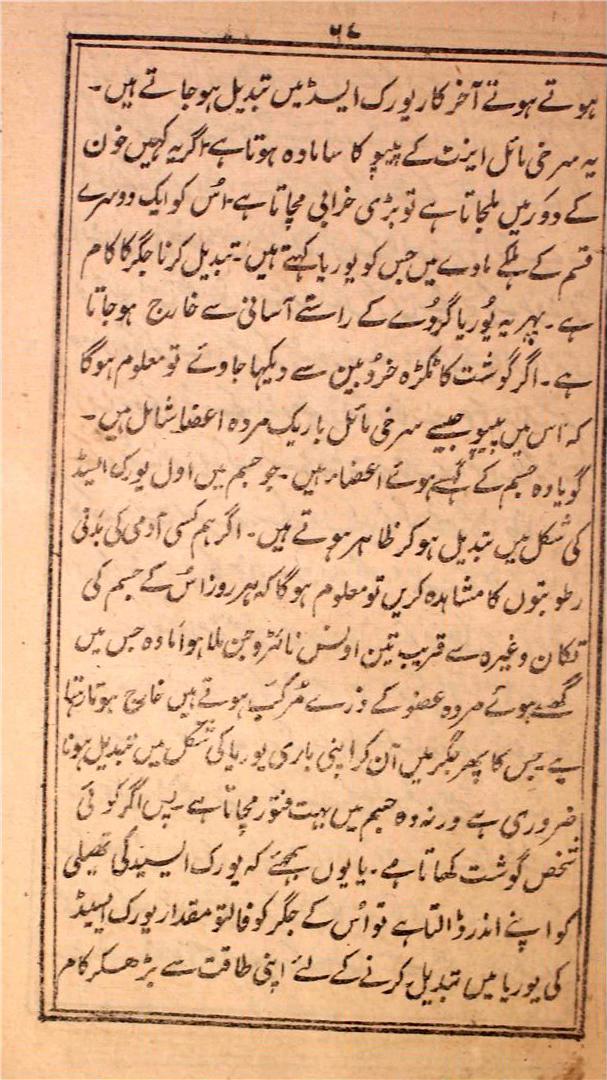 ۵۶
ہوتے ہوتے آخر کار یورک ایسڈ میں تبدیل ہو جاتے ہیں۔
یہ سرخی مائل اینٹ کے پیپو کا سا مادہ ہوتا ہے۔ اگر یہ کہیں خون
کے دور میں ملجاتا ہے تو بڑی خرابی مچاتا ہے۔ اُس کو ایک دوسرے
قسم کے ہلکے مادے میں جس کو یوریا کہتے ہیں۔ تبدیل کرنا جگر کا کام
ہے۔ پہر یہ یُوریا گُردُے کے راستے آسانی سے خارج ہو جاتا
ہے۔ اگر گوشت کا ٹکڑہ خُردبین سے دیکھا جاوے تو معلوم ہو گا
کہ اس میں پیپو جیسے سرخی مائل باریک مردہ اعضا شامل ہیں۔
گویا وہ جسم کے گہسے ہوئے اعضاء ہیں۔ جو جسم میں اول یورک ایسڈ
کی شکل میں تبدیل ہو کر ظاہر ہوتے ہیں۔ اگر ہم کسی آدمی کی بدنی
رطوبتوں کا مشاہدہ کریں تو معلوم ہو گا کہ ہر روز اُس کے جسم کی
تکان وغیرہ سے قریب تین اونس نائٹروجن ملا ہوا مادہ جس میں
گھسے ہوئے مردہ عضو کے ذرے مُرکّب ہوتے ہیں خارج ہوتا رہتا
ہے۔ جس کا پھر جگر میں آن کر اپنی باری یوریا کی شکل میں تبدیل ہونا
ضروری ہے ورنہ وہ جسم میں بہت فتور مچاتا ہے۔ پس اگر کوئی
شخص گوشت کھاتا ہے۔ یا یوں سمجھئے کہ یورک ایسیڈ کی تھیلی
کو اپنے اندر ڈالتا ہے تو اُس کے جگر کو فالتو مقدار یورک ایسیڈ
کی یوریا میں تبدیل کرنے کے لئے اپنی طاقت سے بڑھ کر کام